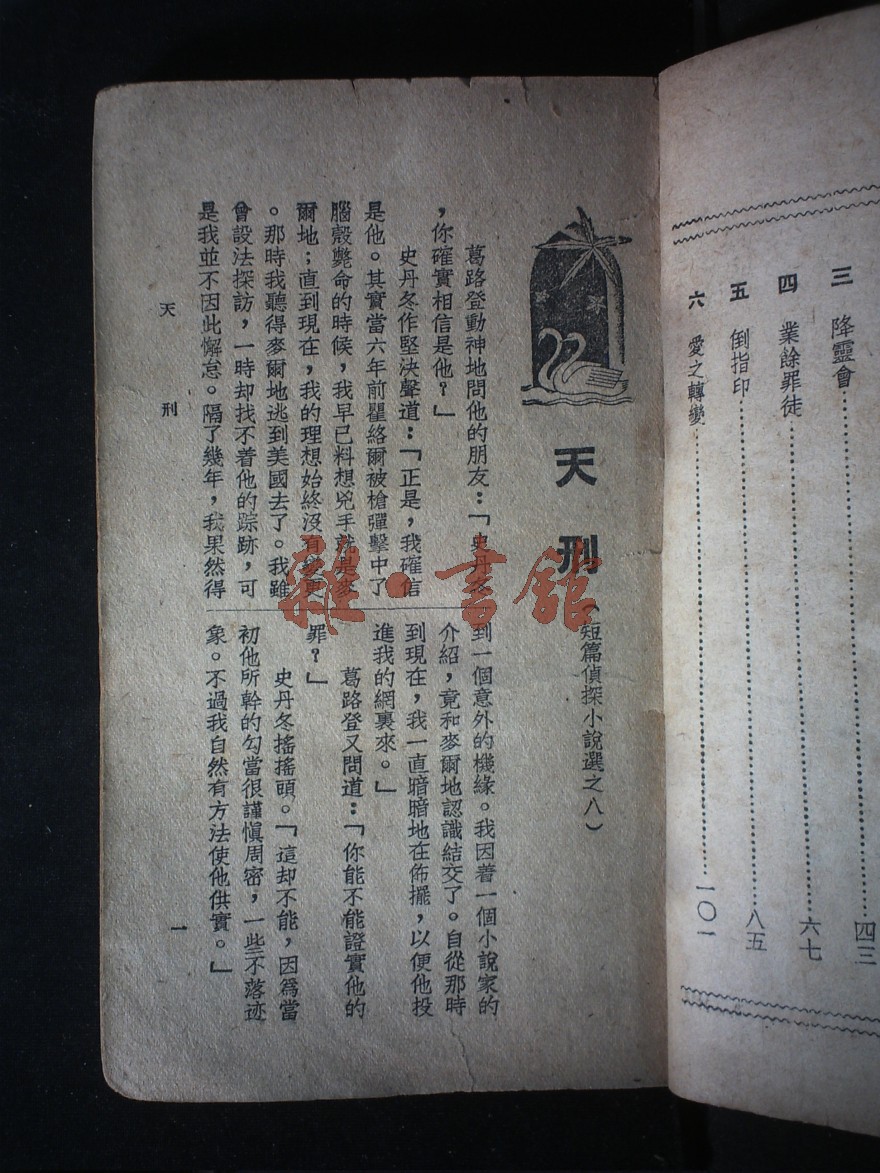 三 降靈會……四三
四 業餘罪徒……六七
五 倒指印……八五
六 愛之轉變……一〇一
天刑
(短篇偵探小說選之八)
葛路登動神地問他的朋友:「史丹冬
,你確實相信是他?」
史丹冬作堅決聲道:「正是,我確信
是他。其實當六年前瞿絡爾被槍彈擊中了
腦殼斃命的時候,我早已料想兇手就是麥
爾地;直到現在,我的理想始終沒有變更
。那時我聽得麥爾地逃到美國去了。我雖
會設法探訪,一時却找不着他的踪跡,可
是我並不因此懈怠。隔了幾年,我果然得
到一個意外的機緣。我因着一個小說家的
介紹,竟和麥爾地認識結交了。自從那時
到現在,我一直暗暗地在佈擺,以便他投
進我的網裏來。」
葛路登又問道:「你能不能證實他的
罪?」
史丹冬搖搖頭。「這却不能,因爲當
初他所幹的勾當很謹愼周密,一些不落迹
象。不過我自然有方法使他供實。」
天刑
一
雜·書館